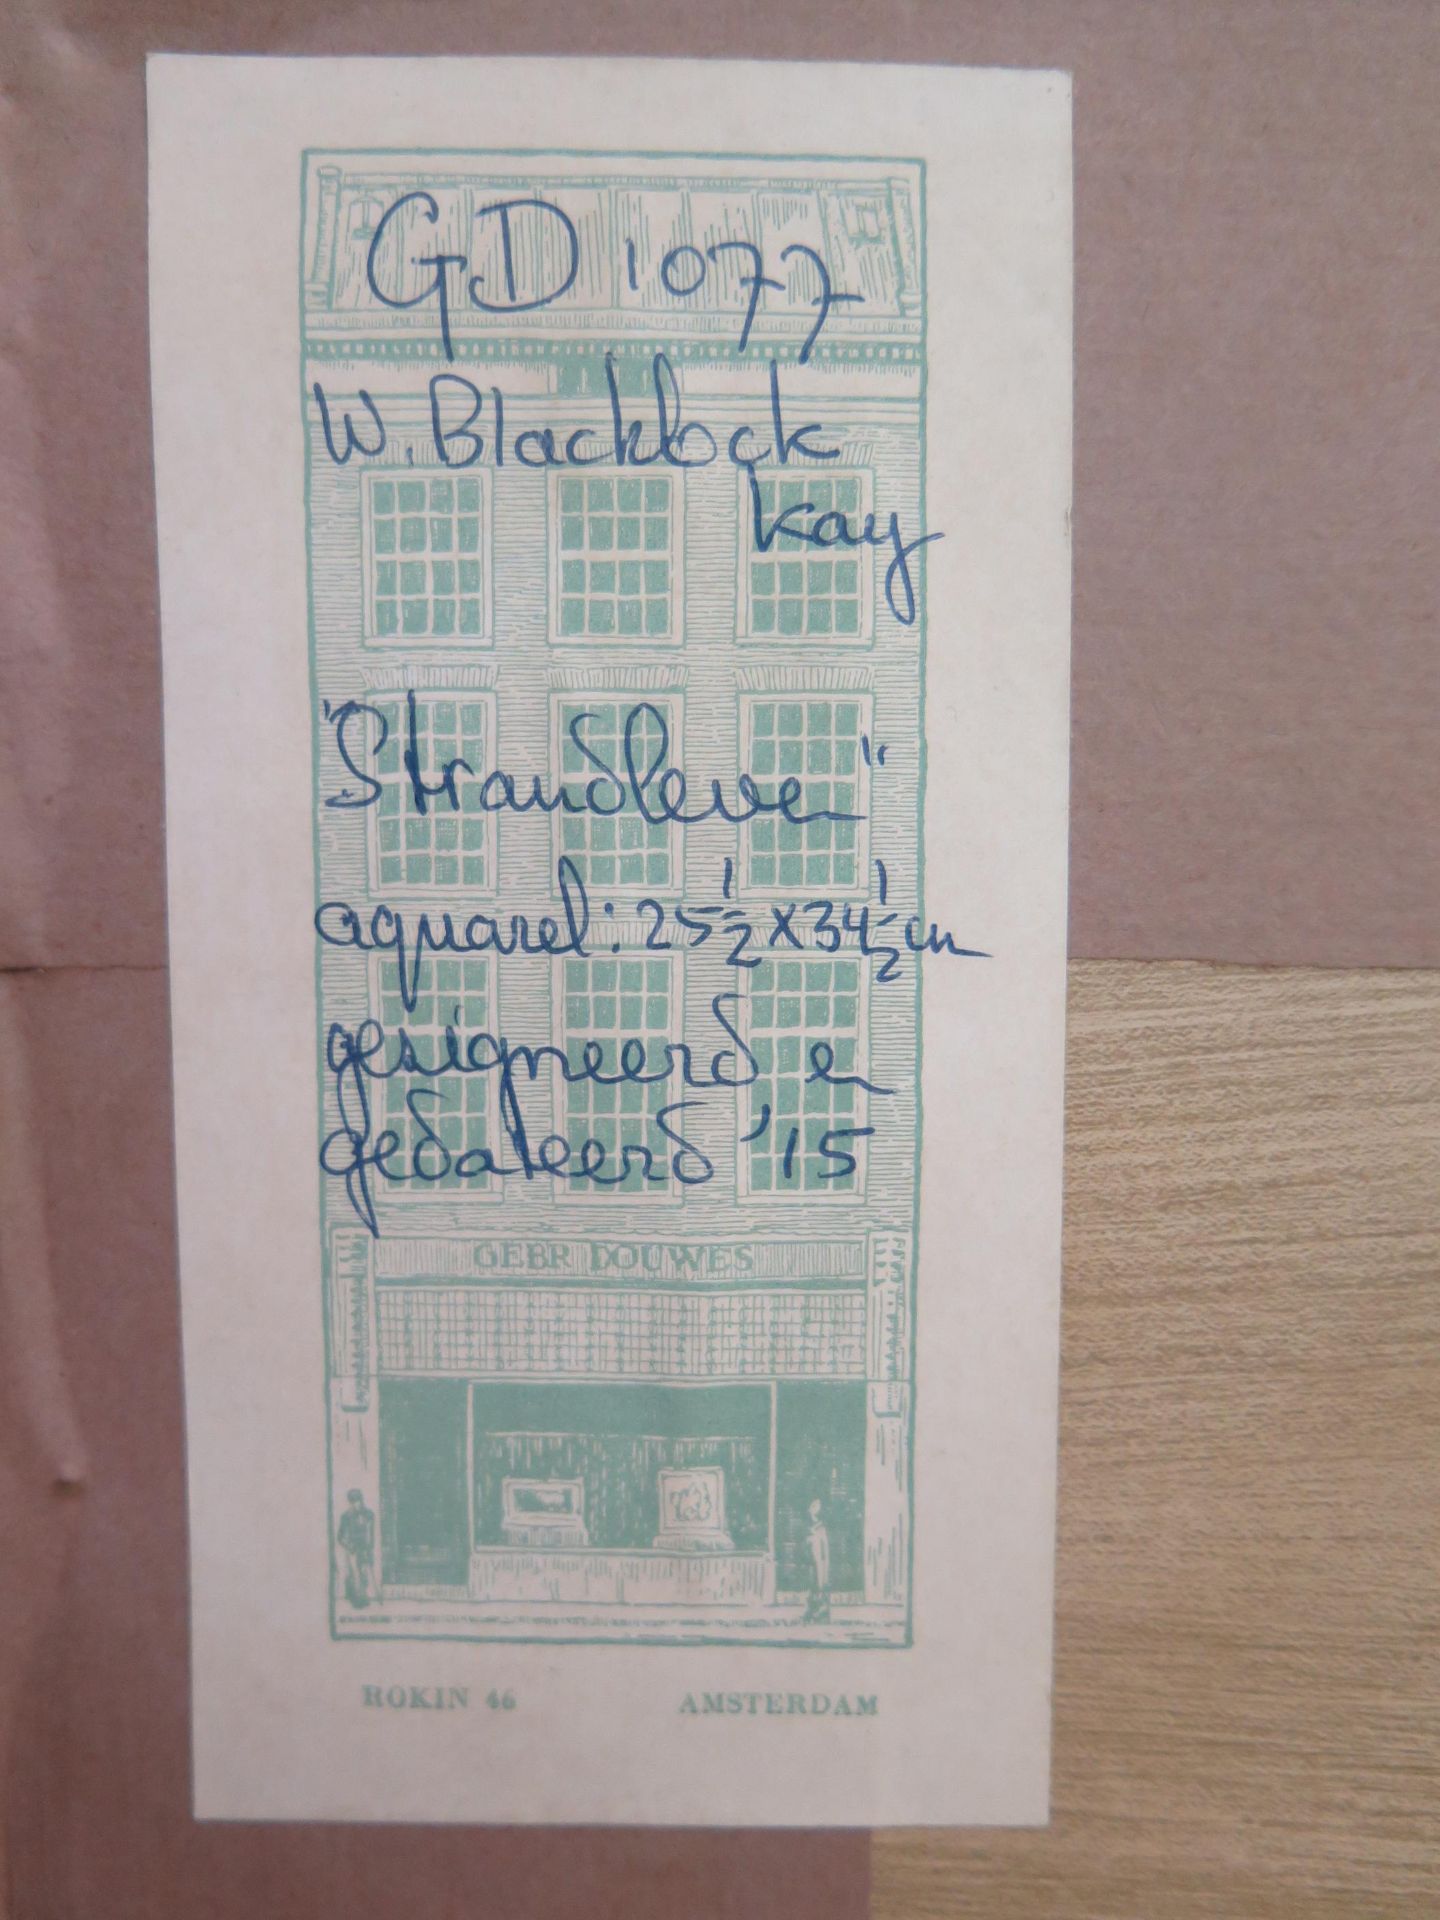 GD 1077
W. Blacklock
Kay
"Strandleven"
aquarel: 25 1/2 x 34 1/2 cm
gesigneerd en
gedateerd '15
GEBR DOUWES
ROKIN 46 AMSTERDAM